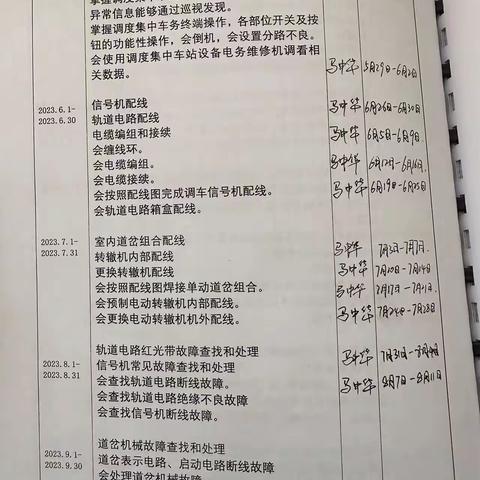 异常信息能够通过巡视发现。
掌握调度集中车务终端操作，各部位开关及按
钮的功能性操作，会倒机，会设置分路不良。
会使用调度集中车站设备电务维修机调看相
关数据。 马中华 5月29-6月2日
2023.6.1-
6.30
信号机配线 马中华 6月26日-6月30日
轨道电路配线
电缆编组和接续 马中华 6月5日-6月9日
会缠线环。
会电缆编组。 马中华 6月12日-6月16日
会电缆接续。
会按照配线图完成调车信号机配线。 马中华 6月19日-6月25日
会轨道电路箱盒配线。
2023.7.1-
7.31
室内道岔组合配线 马中华 7月3日-7月7日
转辙机内部配线
更换转辙机配线 马中华 7月10日-7月14日
会按照配线图焊接单动道岔组合。 马中华 7月17日-7月21日
会预制电动转辙机内部配线。
会更换电动转辙机机外配线。 马中华 7月24日-7月28日
2023.8.1-
8.31
轨道电路红光带故障查找和处理 马中华 7月31日-8月4日
信号机常见故障查找和处理
会查找轨道电路断线故障。 马中华 8月7日-8月11日
会查找轨道电路绝缘不良故障
会查找信号机断线故障。
2023.9.1-
9.30
道岔机械故障查找和处理
道岔表示电路、启动电路断线故障
会处理道岔机械故障